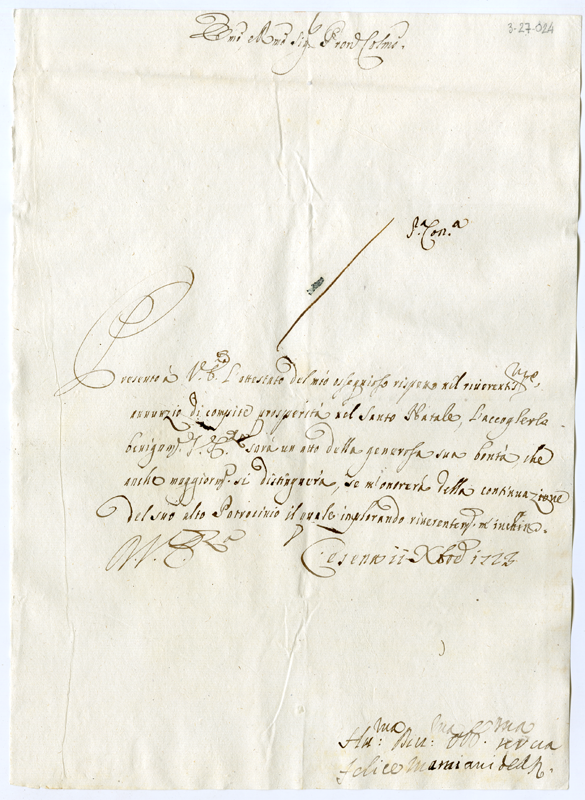 3-27-024
Emo Rmo Sig.r Pron Colmo.
Presento à V. E. l'attestato del mio ossequioso rispetto nel riverent.mo
annunzio di compite prosperità nel Santo Natale, L'accoglierlo
benignam. V. E. sarà un atto della generosa sua bontà che
anche maggiorm. si distinguerà, se m'onorerà della continuazione
del suo alto Patrocinio il quale implorando riverentem. m'inchino.
Cesena 11 Xbre
Felice